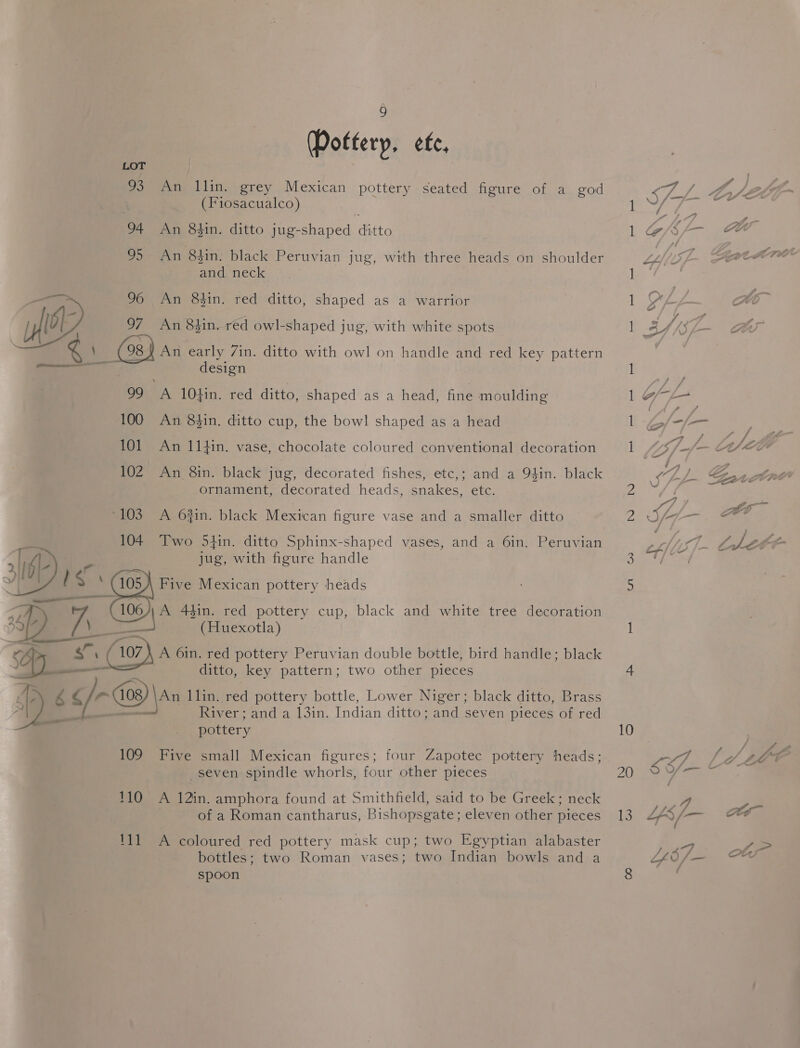 9
Pottery, etc.
LOT
93 An 11in. grey Mexican pottery seated figure of a god
(Fiosacualco) 1
94 An 8½in. ditto jug-shaped ditto 1
95 An 8½in. black Peruvian jug, with three heads on shoulder
and neck 1
96 An 8½in. red ditto, shaped as a warrior 1
97 An 8½in. red owl-shaped jug, with white spots 1
98 An early 7in. ditto with owl on handle and red key pattern
design 1
99 A 10½in. red ditto, shaped as a head, fine moulding 1
100 An 8½in. ditto cup, the bowl shaped as a head 1
101 An 11½in. vase, chocolate coloured conventional decoration 1
102 An 8in. black jug, decorated fishes, etc,; and a 9½in. black
ornament, decorated heads, snakes, etc. 2
103 A 6¾in. black Mexican figure vase and a smaller ditto 2
104 Two 5½in. ditto Sphinx-shaped vases, and a 6in. Peruvian
jug, with figure handle 3
105 Five Mexican pottery heads 5
106 A 4½in. red pottery cup, black and white tree decoration
(Huexotla) 1
107 A 6in. red pottery Peruvian double bottle, bird handle; black
ditto, key pattern; two other pieces 4
108 An 11in. red pottery bottle, Lower Niger; black ditto, Brass
River; and a 13in. Indian ditto; and seven pieces of red
pottery 10
109 Five small Mexican figures; four Zapotec pottery heads;
seven spindle whorls, four other pieces 20
110 A 12in. amphora found at Smithfield, said to be Greek; neck
of a Roman cantharus, Bishopsgate; eleven other pieces 13
111 A coloured red pottery mask cup; two Egyptian alabaster
bottles; two Roman vases; two Indian bowls and a
spoon 8